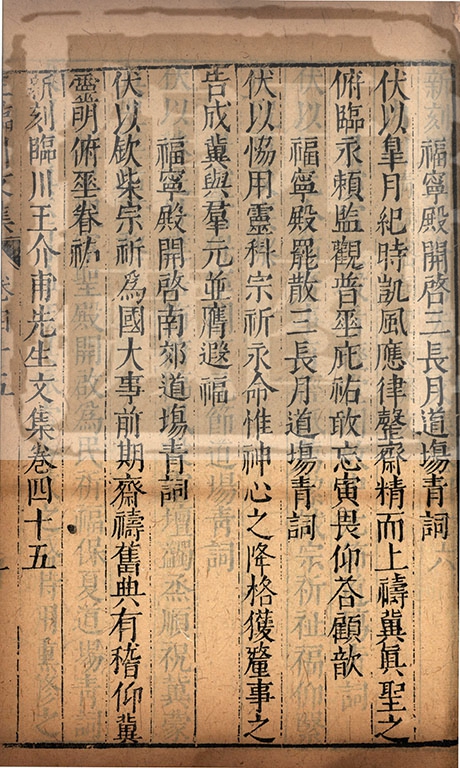 福寧殿開啓三長月道塲青詞
伏以皐月紀時凱風應律整齋精而上禱冀眞聖之
俯臨永頼監觀普垂庇祐敢忘寅畏仰荅顧歆
福寧殿罷散三長月道塲青詞
伏以恊用靈科宗祈永命惟神心之降格獲釐事之
告成冀與羣元並膺遐福
福寧殿開啓南郊道塲青詞
伏以欽柴宗祈爲國大事前期齋禱舊典有稽仰冀
靈萌俯垂眷祐
新刻臨川王介甫先生文集卷四十五